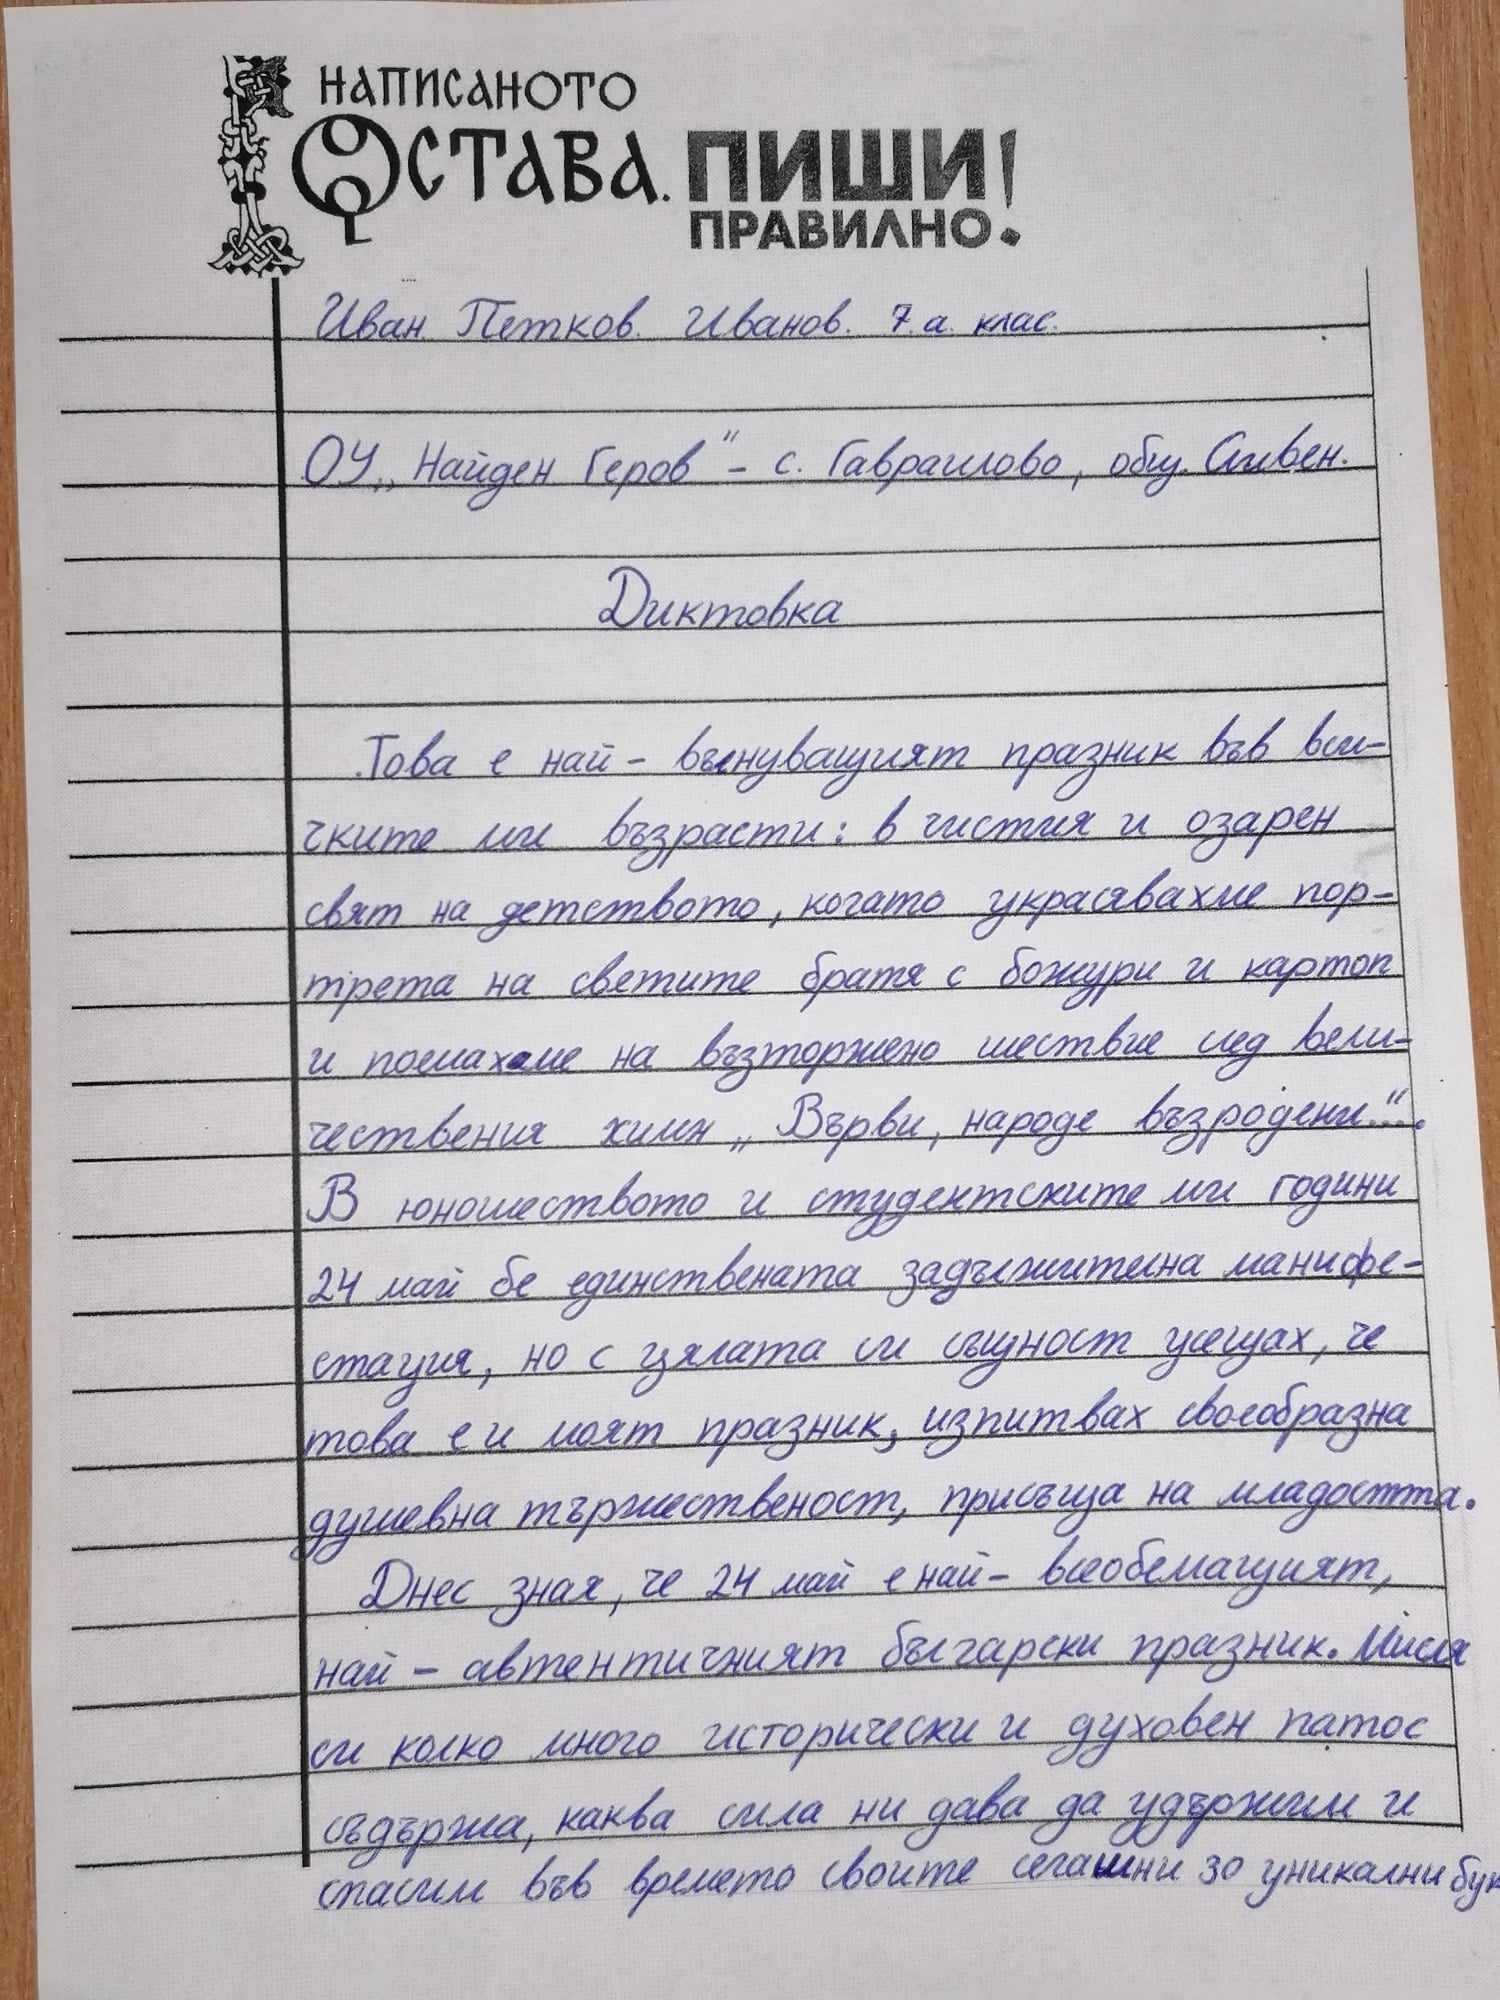 НАПИСАНОТО
ОСТАВА. ПИШИ
ПРАВИЛНО!
Иван Петков. Иванов. 7. а. клас.
ОУ „Найден Геров“ - с. Гавраилово, общ. Сливен.
Диктовка
Това е най - вълнуващият празник във вси-
чките ми възрасти: в чистия и озарен
свят на детството, когато украсявахме пор-
трета на светите братя с божури и картоп
и поемахме на възторжено шествие след вели-
чествения химн „Върви, народе възродени...“.
В юношеството и студентските ми години
24 май бе единствената задължителна манифе-
стация, но с цялата си същност усещах, че
това е и моят празник, изпитвах своеобразна
душевна тържественост, присъща на младостта.
Днес зная, че 24 май е най - всеобемащият,
най - автентичният български празник. Мисля
си колко много исторически и духовен патос
съдържа, каква сила ни дава да удържим и
спасим във времето своите сегашни 30 уникални бук